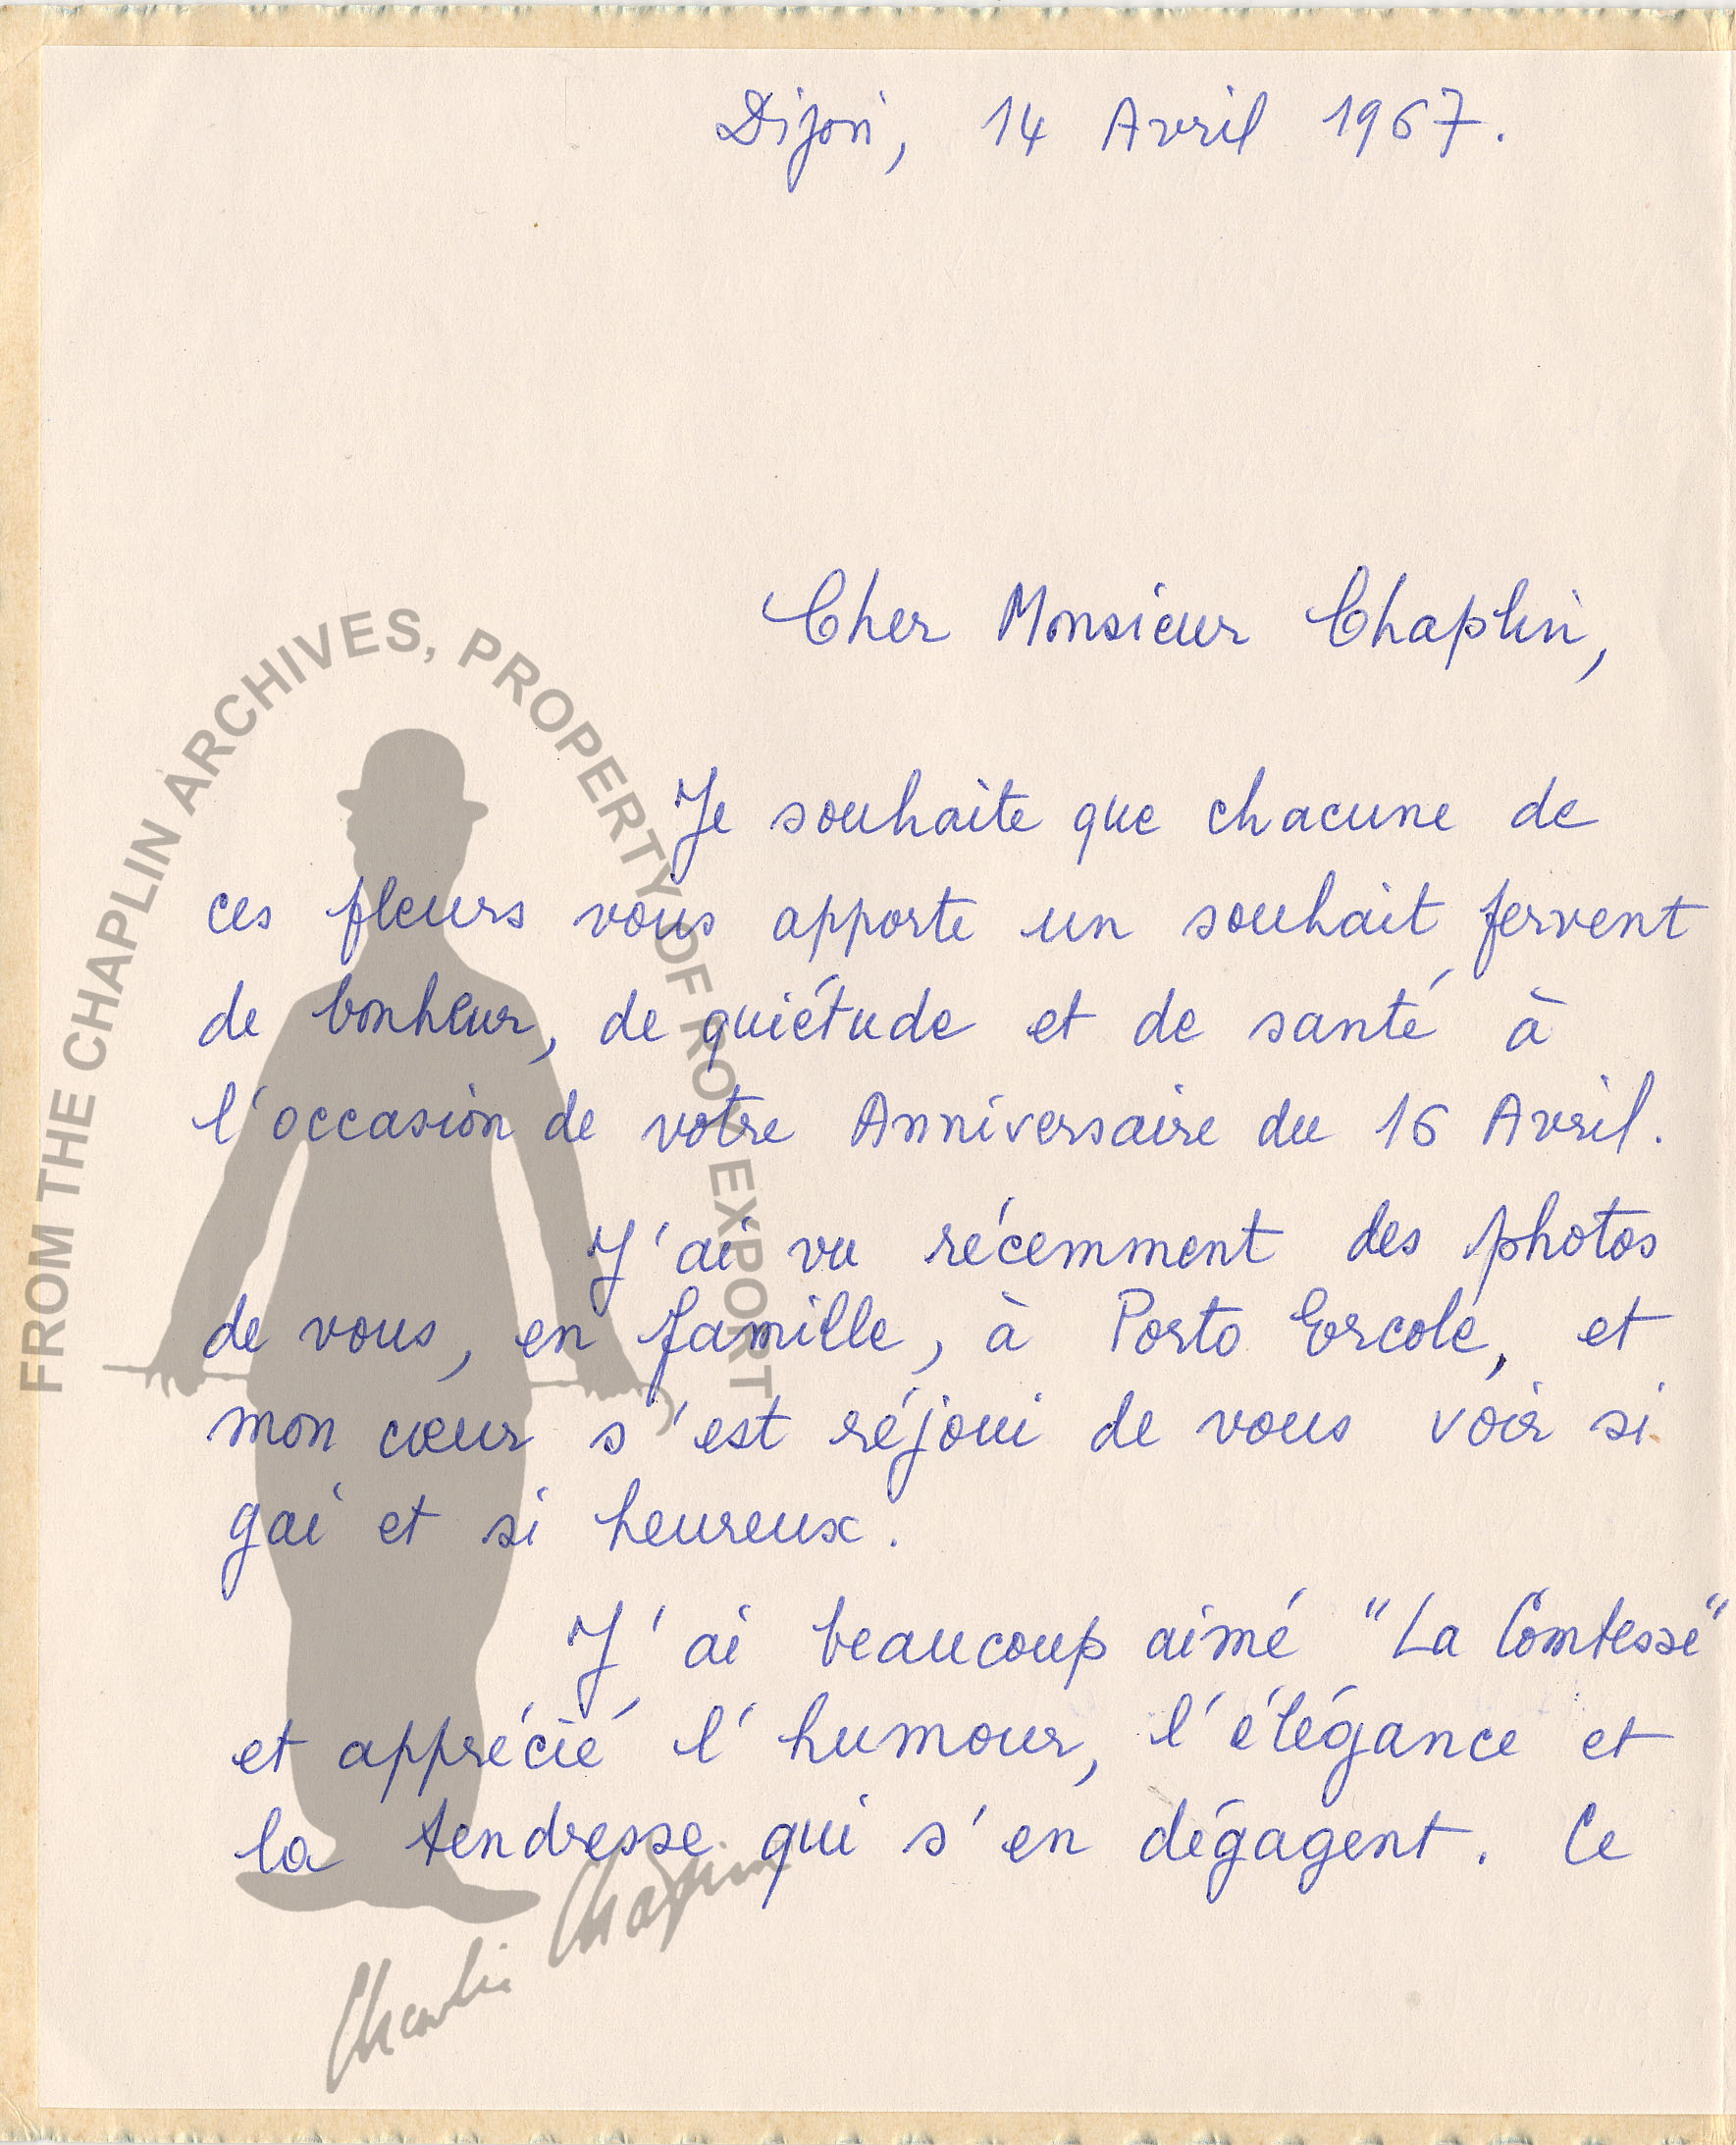 Dijon, 14 Avril 1967.
Cher Monsieur Chaplin,
Je souhaite que chacune de
ces fleurs vous apporte un souhait fervent
de bonheur, de quiétude et de santé à
l'occasion de votre Anniversaire du 16 Avril.
J'ai vu récemment des photos
de vous, en famille, à Porto Ercole, et
mon cœur s'est réjoui de vous voir si
gai et si heureux.
J'ai beaucoup aimé "La Comtesse"
et apprécié l'humour, l'élégance et
la tendresse qui s'en dégagent. Ce
FROM THE CHAPLIN ARCHIVES, PROPERTY OF ROY EXPORT
Charlie Chaplin